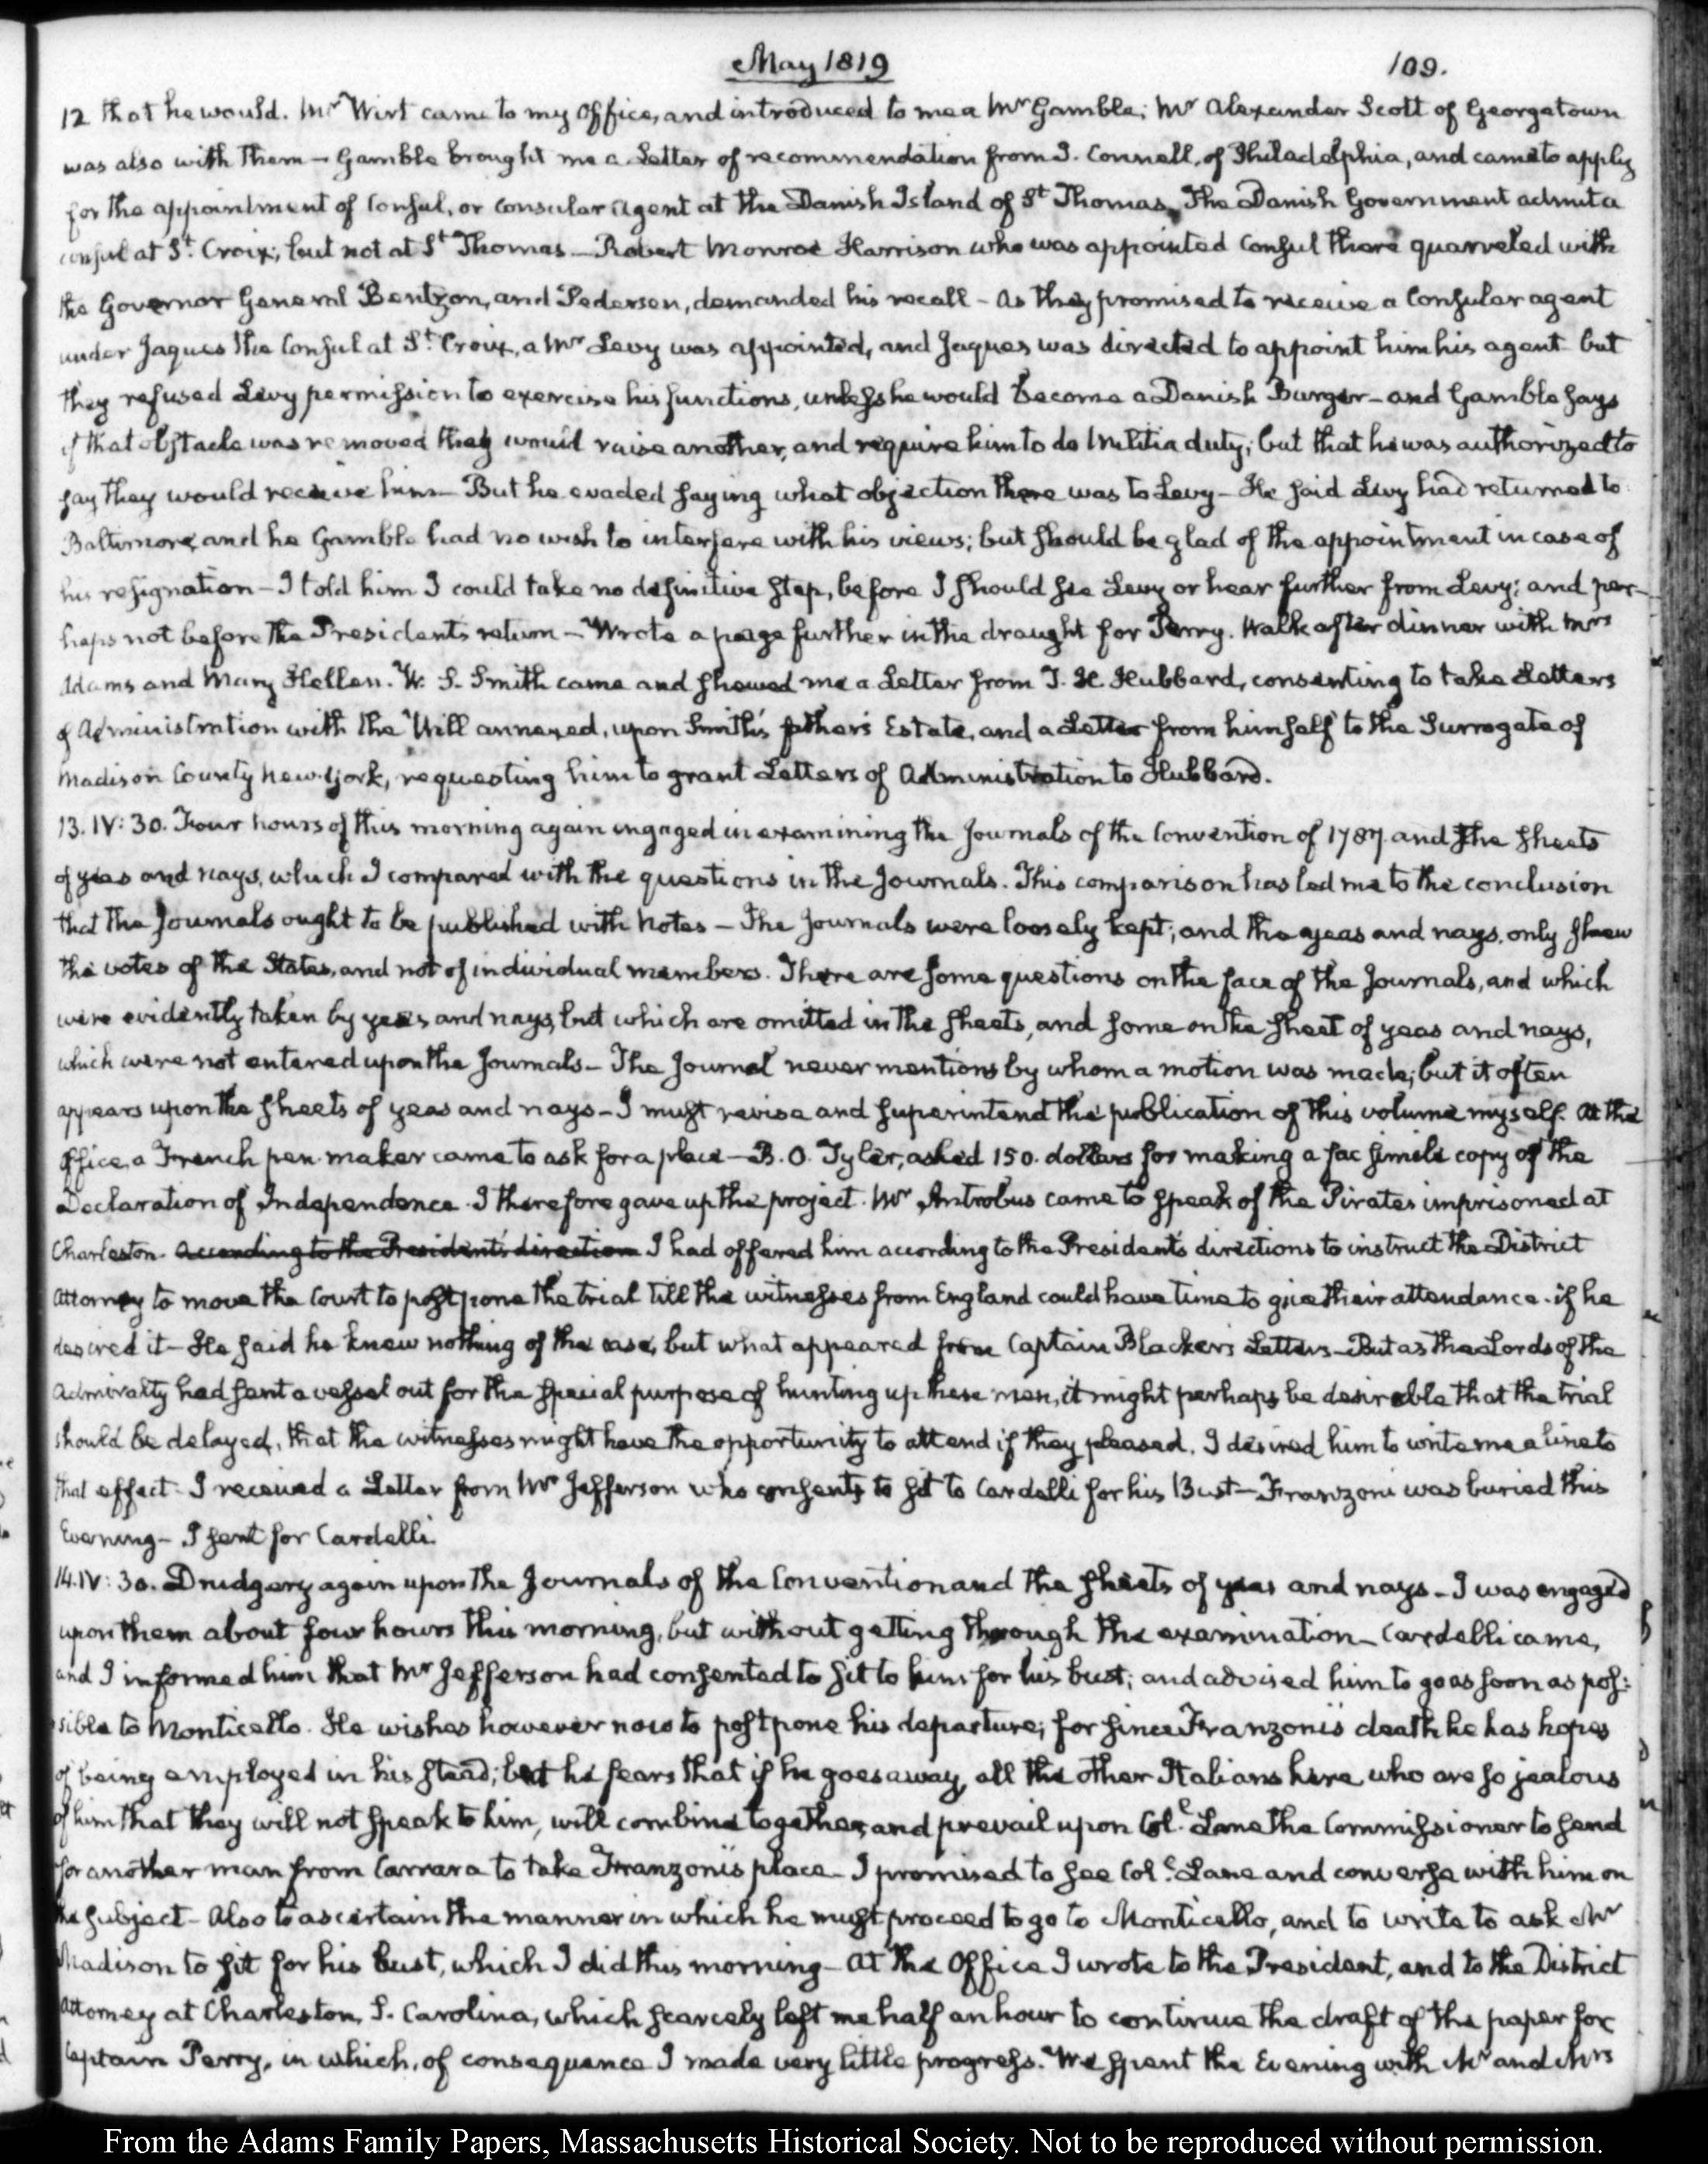 May 1819
109.
12 that he would. Mr. Wirt came to my Office, and introduced to me a Mr Gamble; Mr Alexander Scott of Georgetown
was also with them — Gamble brought me a Letter of recommendation from J. Connell, of Philadelphia, and came to apply
for the appointment of Consul, or Consular Agent at the Danish Island of St Thomas. The Danish Government admit a
consul at St. Croix; but not at St Thomas — Robert Monroe Harrison who was appointed Consul there quarreled with
the Governor General Bentzon, and Pedersen, demanded his recall — As they promised to receive a Consular agent
under Jaques the Consul at St. Croix, a Mr Levy was appointed, and Jaques was directed to appoint him his agent but
they refused Levy permission to exercise his functions, unless he would become a Danish Burger — and Gamble says
if that obstacle was removed they would raise another, and require him to do Militia duty; but that he was authorized to
say they would receive him — But he evaded saying what objection there was to Levy — He said Levy had returned to
Baltimore, and he Gamble had no wish to interfere with his views; but should be glad of the appointment in case of
his resignation — I told him I could take no definitive step, before I should see Levy or hear further from Levy; and per-
haps not before the President's return — Wrote a page further in the draught for Perry. Walk after dinner with Mrs
Adams and Mary Hellen. W. S. Smith came and showed me a Letter from T. H. Hubbard, consenting to take Letters
of Administration with the Will annexed, upon Smith's father's Estate, and a Letter from himself to the Surrogate of
Madison County New-York, requesting him to grant Letters of Administration to Hubbard.
13. IV: 30. Four hours of this morning again engaged in examining the Journals of the Convention of 1787. and the sheets
of yeas and nays, which I compared with the questions in the Journals. This comparison has led me to the conclusion
that the Journals ought to be published with Notes — The Journals were loosely kept; and the yeas and nays, only shew
the votes of the States, and not of individual members. There are some questions on the face of the Journals, and which
were evidently taken by yeas and nays, but which are omitted in the sheets, and some on the sheet of yeas and nays,
which were not entered upon the Journals — The Journal never mentions by whom a motion was made; but it often
appears upon the sheets of yeas and nays — I must revise and superintend the publication of this volume myself. At the
Office, a French pen-maker came to ask for a place — B. O. Tyler, asked 150. dollars for making a fac simile copy of the
Declaration of Independence. I therefore gave up the project. Mr Antrobus came to speak of the Pirates imprisoned at
Charleston. According to the President's direction I had offered him according to the President's directions to instruct the District
Attorney to move the Court to postpone the trial till the witnesses from England could have time to give their attendance. if he
desired it — He said he knew nothing of the case, but what appeared from Captain Blacker's Letters — But as the Lords of the
Admiralty had sent a vessel out for the special purpose of hunting up these men, it might perhaps be desirable that the trial
should be delayed, that the witnesses might have the opportunity to attend if they pleased. I desired him to write me a line to
that effect. I received a Letter from Mr Jefferson who consents to sit to Cardelli for his Bust — Franzoni was buried this
Evening — I sent for Cardelli.
14. IV: 30. Drudgery again upon the Journals of the Convention and the sheets of yeas and nays — I was engaged
upon them about four hours this morning, but without getting through the examination — Cardelli came,
and I informed him that Mr Jefferson had consented to sit to him for his bust; and advised him to go as soon as pos:
sible to Monticello. He wishes however now to postpone his departure; for since Franzoni's death he has hopes
of being employed in his stead; but he fears that if he goes away, all the other Italians here, who are so jealous
of him that they will not speak to him, will combine together, and prevail upon Col. Lane the Commissioner to send
for another man from Carrara to take Franzoni's place — I promised to see Col. Lane and converse with him on
the subject — Also to ascertain the manner in which he must proceed to go to Monticello, and to write to ask Mr
Madison to sit for his bust, which I did this morning — At the Office I wrote to the President, and to the District
Attorney at Charleston, S. Carolina, which scarcely left me half an hour to continue the draft of the paper for
Captain Perry, in which, of consequence I made very little progress. We spent the Evening with Mr and Mrs
From the Adams Family Papers, Massachusetts Historical Society. Not to be reproduced without permission.